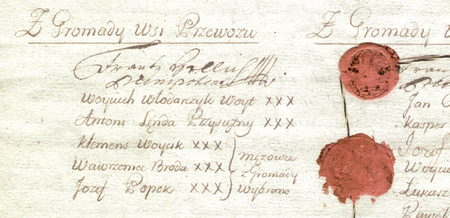 Z Gromady Wsi Przewozu
Woyciech Włodarczyk Woyt XXX
Antoni Lenda Przysężny XXX
Klemens Woycik XXX
Wawrzeniec Broda XXX
Jozef Popek XXX
mężowie
z Gromady
wybrani
Z Gromady
Jan
Kasper
Jozef
Woyci
Łukasz
Paweł